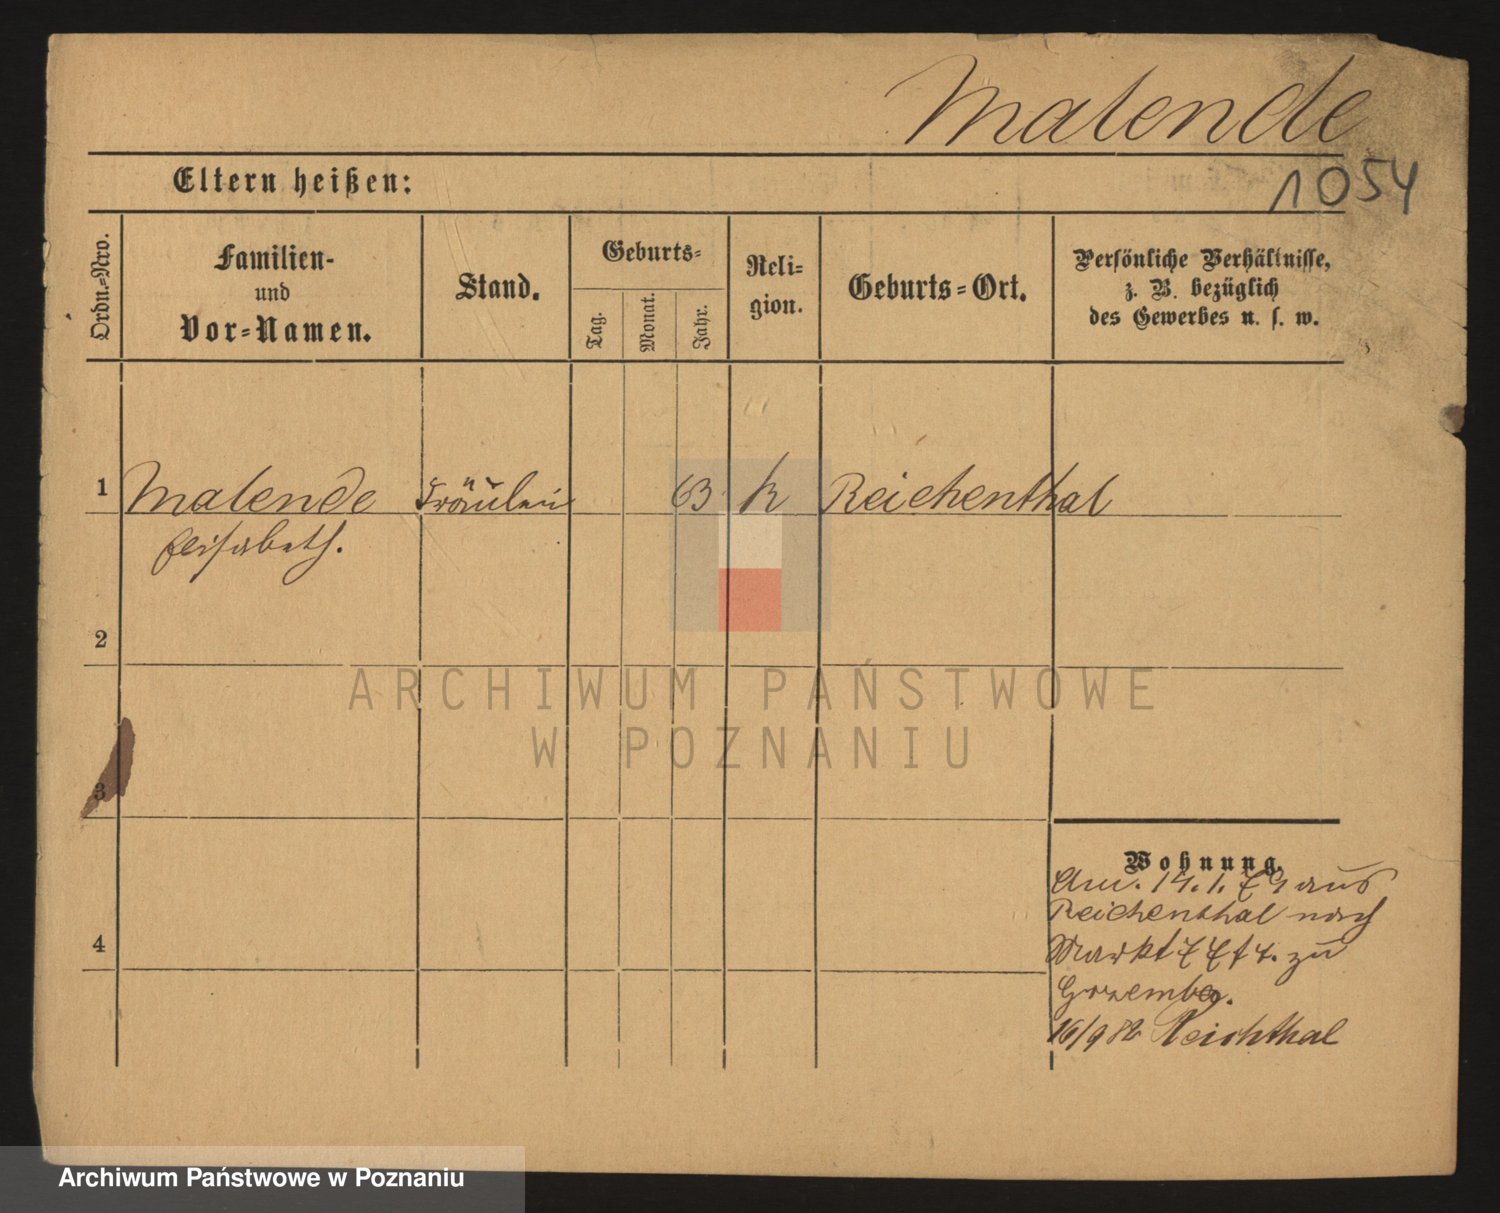 Malende
1054
Eltern heißen:
Ordn.=Nro.
Familien-
und
Vor=Namen.
Stand.
Geburts=
Tag.
Monat.
Jahr.
Reli=
gion.
Geburts=Ort.
Persönliche Verhältnisse,
z. B. bezüglich
des Gewerbes u. s. w.
1
Malende
Fräulein
63
k
Reichenthal
Elisabeth.
2
ARCHIWUM PAŃSTWOWE
W POZNANIU
3
Wohnung.
Am. 14. 1. aus
Reichenthal nach
4
Markt zu
16/9 82 Reichthal
Archiwum Państwowe w Poznaniu